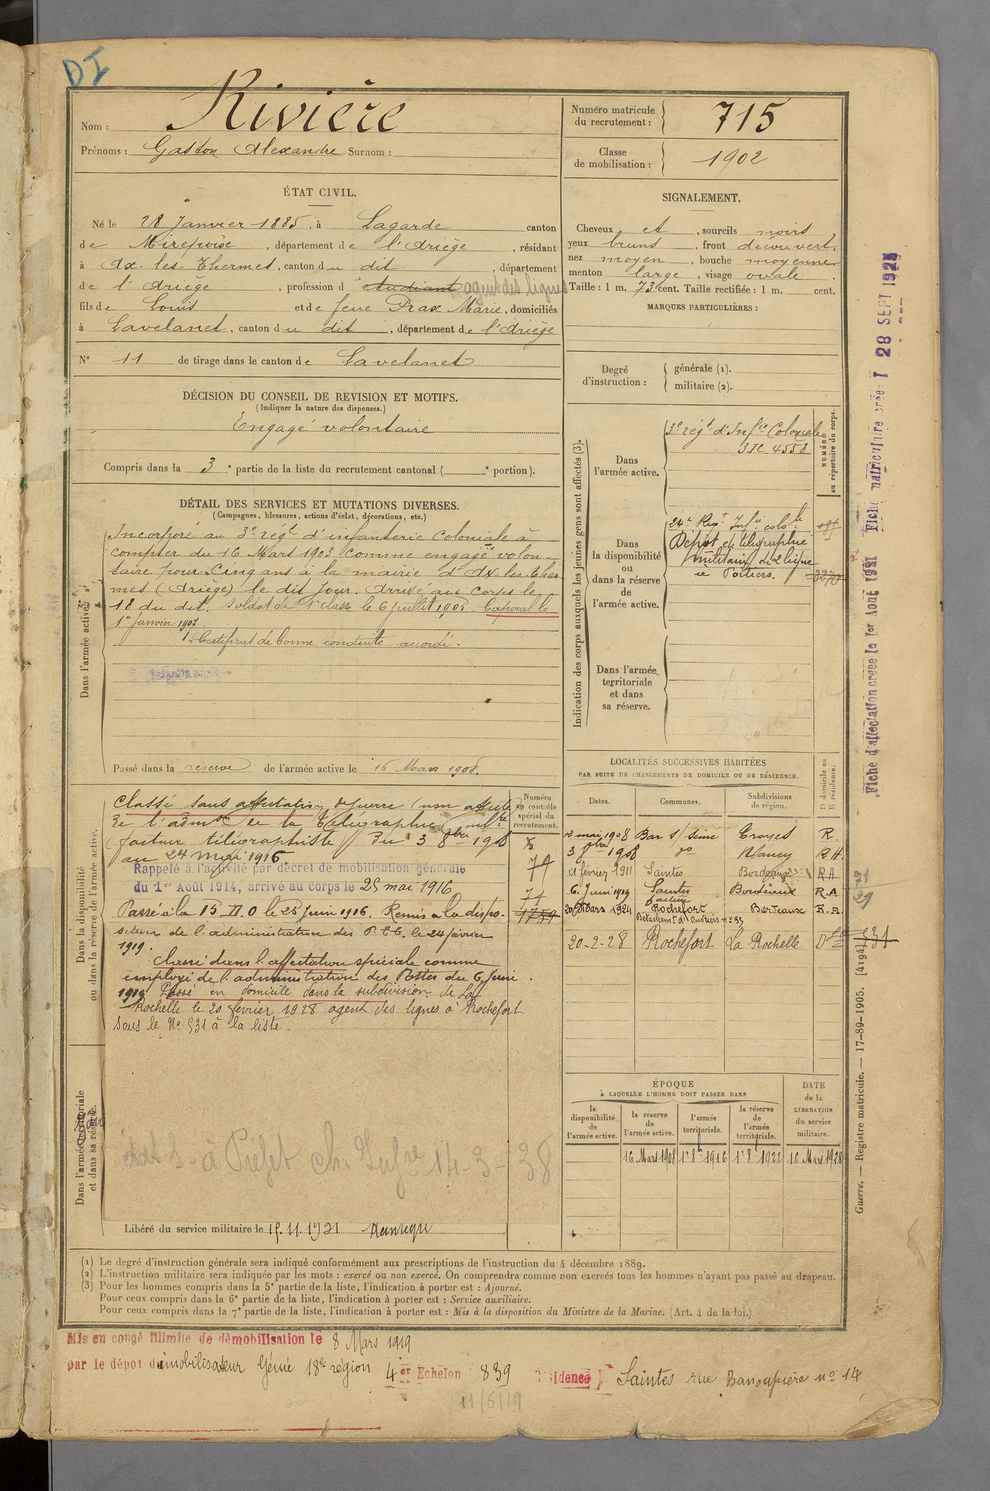 DI
Nom : Rivière
Prénoms : Gaston Alexandre Surnom :
Numéro matricule du recrutement : 715
Classe de mobilisation : 1902
ÉTAT CIVIL.
Né le 28 Janvier 1885, à Lagarde canton
de Mirepoix, département de l'Ariège, résidant
à Ax-les-Thermes, canton du dit, département
de l'Ariège, profession d étudiant agent des lignes
fils de Louis et de feue Prax Marie, domiciliés
à Lavelanet, canton du dit, département de l'Ariège
N° 11 de tirage dans le canton de Lavelanet
SIGNALEMENT.
Cheveux et , sourcils noirs
yeux bruns , front découvert,
nez moyen , bouche moyenne
menton large , visage ovale
Taille : 1 m. 73 cent. Taille rectifiée : 1 m. cent.
MARQUES PARTICULIÈRES :
Degré d'instruction : générale (1).
militaire (2).
DÉCISION DU CONSEIL DE REVISION ET MOTIFS.
(Indiquer la nature des dispenses.)
Engagé volontaire
Compris dans la 3e partie de la liste du recrutement cantonal ( e portion).
DÉTAIL DES SERVICES ET MUTATIONS DIVERSES.
(Campagnes, blessures, actions d'éclat, décorations, etc.)
Dans l'armée active.
Incorporé au 3e régt d'infanterie Coloniale à
compter du 16 Mars 1903 comme engagé volon-
taire pour Cinq ans à la mairie d'Ax-les-Ther-
mes (Ariège) le dit jour. Arrivé au corps le
18 du dit. Soldat de 1e classe le 6 juillet 1905 Caporal le
1er janvier 1907
Certificat de bonne conduite accordé.
Passé dans la réserve de l'armée active le 16 Mars 1908.
Indication des corps auxquels les jeunes gens sont affectés (3).
NUMÉRO au répertoire du corps.
Dans l'armée active.
3e régt d'Infie Coloniale
4558
Dans la disponibilité ou dans la réserve de l'armée active.
24e Regt Infie colole
Dépôt de télégraphie
militaire de 2e ligne
à Poitiers.
Dans l'armée territoriale et dans sa réserve.
Dans la disponibilité ou dans la réserve de l'armée active.
Numéro au contrôle spécial du recrutement.
Classé sans affectation de guerre (non affecté
de l'admon de la Télégraphie milre
(facteur télégraphiste) du 3 8bre 1908
au 24 mai 1916.
Rappelé à l'activité par décret de mobilisation générale
du 1er Août 1914, arrivé au corps le 25 mai 1916
Passé à la 15 le 25 Juin 1916. Remis à la dispo-
sition de l'administration des P.T.T. le 24 février
1919.
Classé dans l'affectation spéciale comme
employé de l'administration des Postes du 6 Juin
1919 Passé en domicile dans la subdivision de La
Rochelle le 20 février 1928 agent des lignes à Rochefort
sous le No 531 à la liste.
LOCALITÉS SUCCESSIVES HABITÉES
PAR SUITE DE CHANGEMENTS DE DOMICILE OU DE RÉSIDENCE.
Dates. Communes. Subdivisions de région. D domicile ou R résidence.
mai 1908 Bar s/ Seine Troyes R
3 8bre 1908 do Nancy
février 1911 Saintes Bordeaux R.A
6 Juin 1919 Saintes Bordeaux R.A
20 Mars 1924 Rochefort Bordeaux R.A.
20-2-28 Rochefort La Rochelle 531
ÉPOQUE
À LAQUELLE L'HOMME DOIT PASSER DANS
DATE de la LIBÉRATION du service militaire.
la disponibilité de l'armée active.
la réserve de l'armée active.
l'armée territoriale.
la réserve de l'armée territoriale.
16 Mars 1908 1er 8bre 1916 1er 8bre 1922 16 Mars 1928
Dans l'armée territoriale et dans sa réserve.
à Préfet 14-3-38
Libéré du service militaire le 15.11.1931
(1) Le degré d'instruction générale sera indiqué conformément aux prescriptions de l'instruction du 4 décembre 1889.
(2) L'instruction militaire sera indiquée par les mots : exercé ou non exercé. On comprendra comme non exercés tous les hommes n'ayant pas passé au drapeau.
(3) Pour les hommes compris dans la 5e partie de la liste, l'indication à porter est : Ajourné.
Pour ceux compris dans la 6e partie de la liste, l'indication à porter est : Service auxiliaire.
Pour ceux compris dans la 7e partie de la liste, l'indication à porter est : Mis à la disposition du Ministre de la Marine. (Art. 4 de la loi.)
Mis en congé illimité de démobilisation le 8 Mars 1919
par le dépôt démobilisateur Génie 18e région 4er Echelon 839 Résidence Saintes rue no 14
11/6/19
Fiche d'affectation créée le 1er Août 1921 Fiche matricule créée 28 SEPT 1925
Guerre. — Registre matricule. — 17-89-1905. [4194]